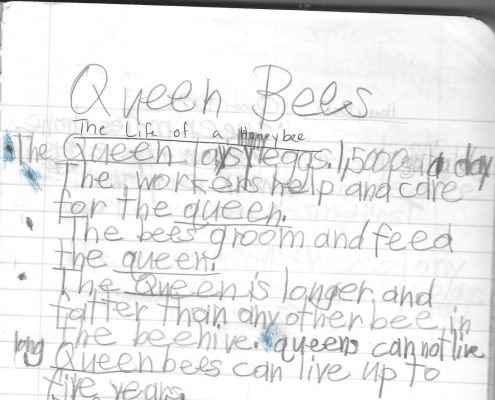 Queen Bees
The Life of a Honeybee
The Queen lays eggs. 1,500 a day
The workers help and care
for the queen.
The bees groom and feed
the queen.
The Queen is longer and
fatter than any other bee in
the beehive. queens cannot live
long Queen bees can live up to
five years.